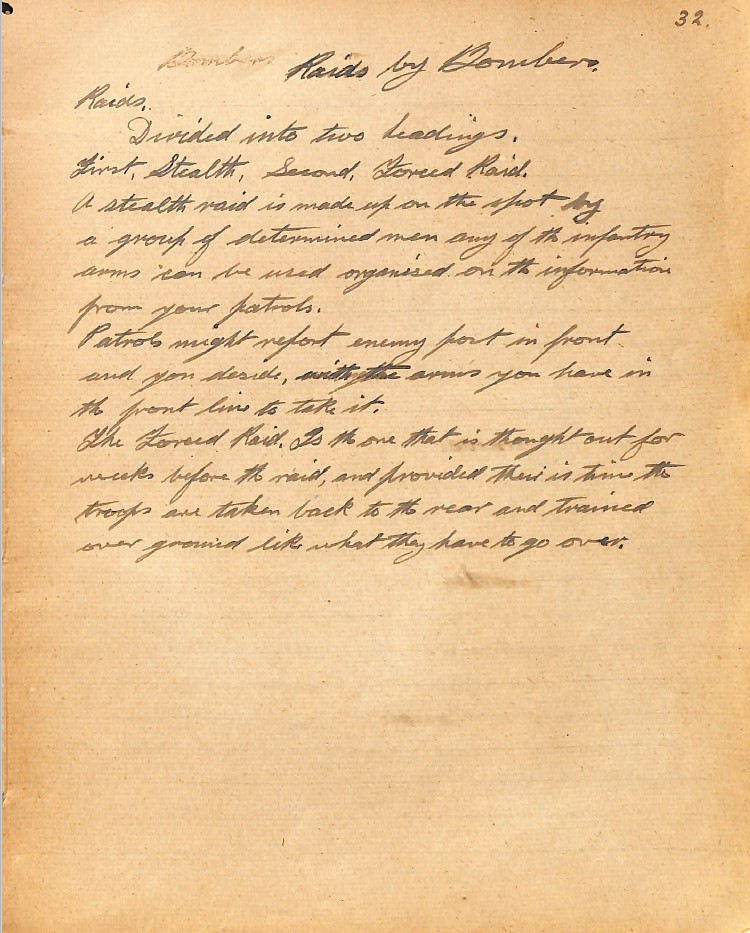 32.
Bombers Raids by Bombers.
Raids.
Divided into two headings.
First, Stealth, Second, Forced Raid.
A stealth raid is made up on the spot by
a group of determined men any of th infantry
arms can be used organised on th information
from your patrols.
Patrols might report enemy post in front
and you deside, with the arms you have in
th front line to take it.
The Forced Raid. Is th one that is thought out for
weeks before th raid, and provided their is time the
troops are taken back to th rear and trained
over ground like what they have to go over.